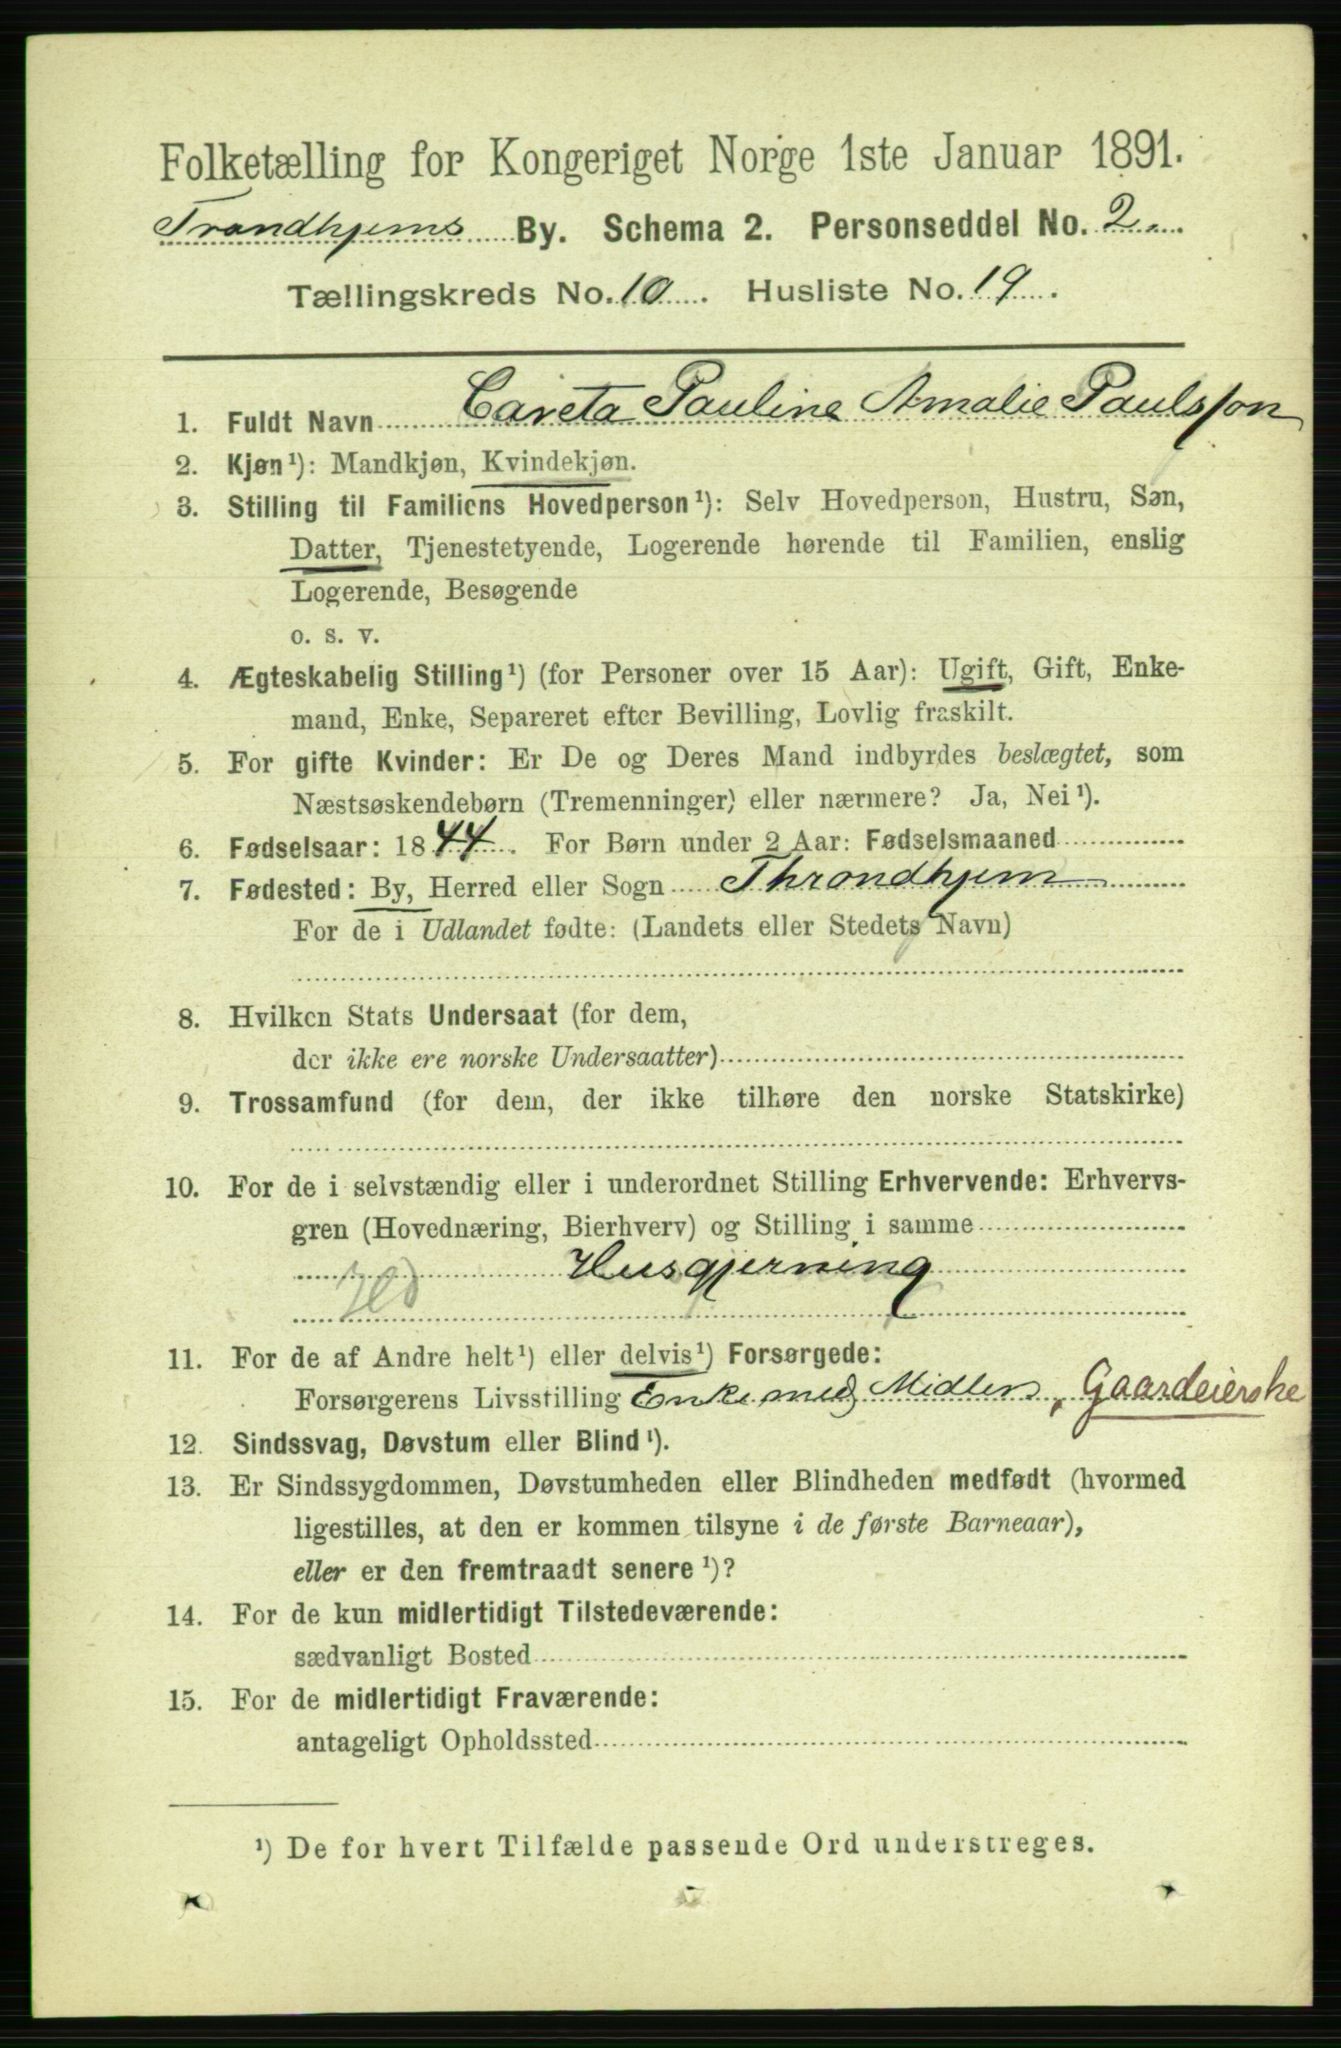 Folketælling for Kongeriget Norge 1ste Januar 1891.
Trondhjems By. Schema 2. Personseddel No. 2
Tællingskreds No. 10. Husliste No. 19.
1. Fuldt Navn Careta Pauline Amalie Paulsson
2. Kjøn¹): Mandkjøn, Kvindekjøn.
3. Stilling til Familiens Hovedperson¹): Selv Hovedperson, Hustru, Søn,
Datter, Tjenestetyende, Logerende hørende til Familien, enslig
Logerende, Besøgende
o. s. v.
4. Ægteskabelig Stilling¹) (for Personer over 15 Aar): Ugift, Gift, Enke-
mand, Enke, Separeret efter Bevilling, Lovlig fraskilt.
5. For gifte Kvinder: Er De og Deres Mand indbyrdes beslægtet, som
Næstsøskendebørn (Tremenninger) eller nærmere? Ja, Nei¹).
6. Fødselsaar: 1844. For Børn under 2 Aar: Fødselsmaaned
7. Fødested: By, Herred eller Sogn Throndhjem
For de i Udlandet fødte: (Landets eller Stedets Navn)
8. Hvilken Stats Undersaat (for dem,
der ikke ere norske Undersaatter)
9. Trossamfund (for dem, der ikke tilhøre den norske Statskirke)
10. For de i selvstændig eller i underordnet Stilling Erhvervende: Erhvervs-
gren (Hovednæring, Bierhverv) og Stilling i samme
Husgjerning
11. For de af Andre helt¹) eller delvis¹) Forsørgede:
Forsørgerens Livsstilling Enke med Midler, Gaardeierske
12. Sindssvag, Døvstum eller Blind¹).
13. Er Sindssygdommen, Døvstumheden eller Blindheden medfødt (hvormed
ligestilles, at den er kommen tilsyne i de første Barneaar),
eller er den fremtraadt senere¹)?
14. For de kun midlertidigt Tilstedeværende:
sædvanligt Bosted
15. For de midlertidigt Fraværende:
antageligt Opholdssted
¹) De for hvert Tilfælde passende Ord understreges.